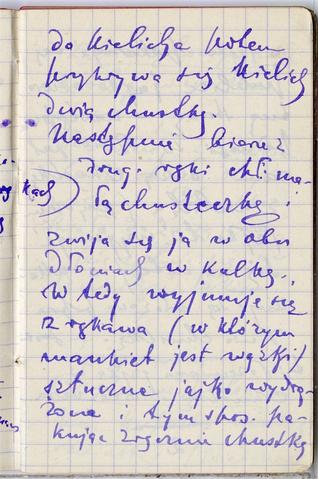 do kielicha potem
przykrywa się kielich
dwią chustką.
Następnie bierze z
drug. ręki ma-
łą chusteczkę i
zwija się ją w obu
dłoniach w kulkę.
W tedy wyjmuje się
z rękawa (w którym
mankiet jest wązki)
sztuczne jajko wydrą-
żone i tym spos. pa-
kując zręcznie chustkę